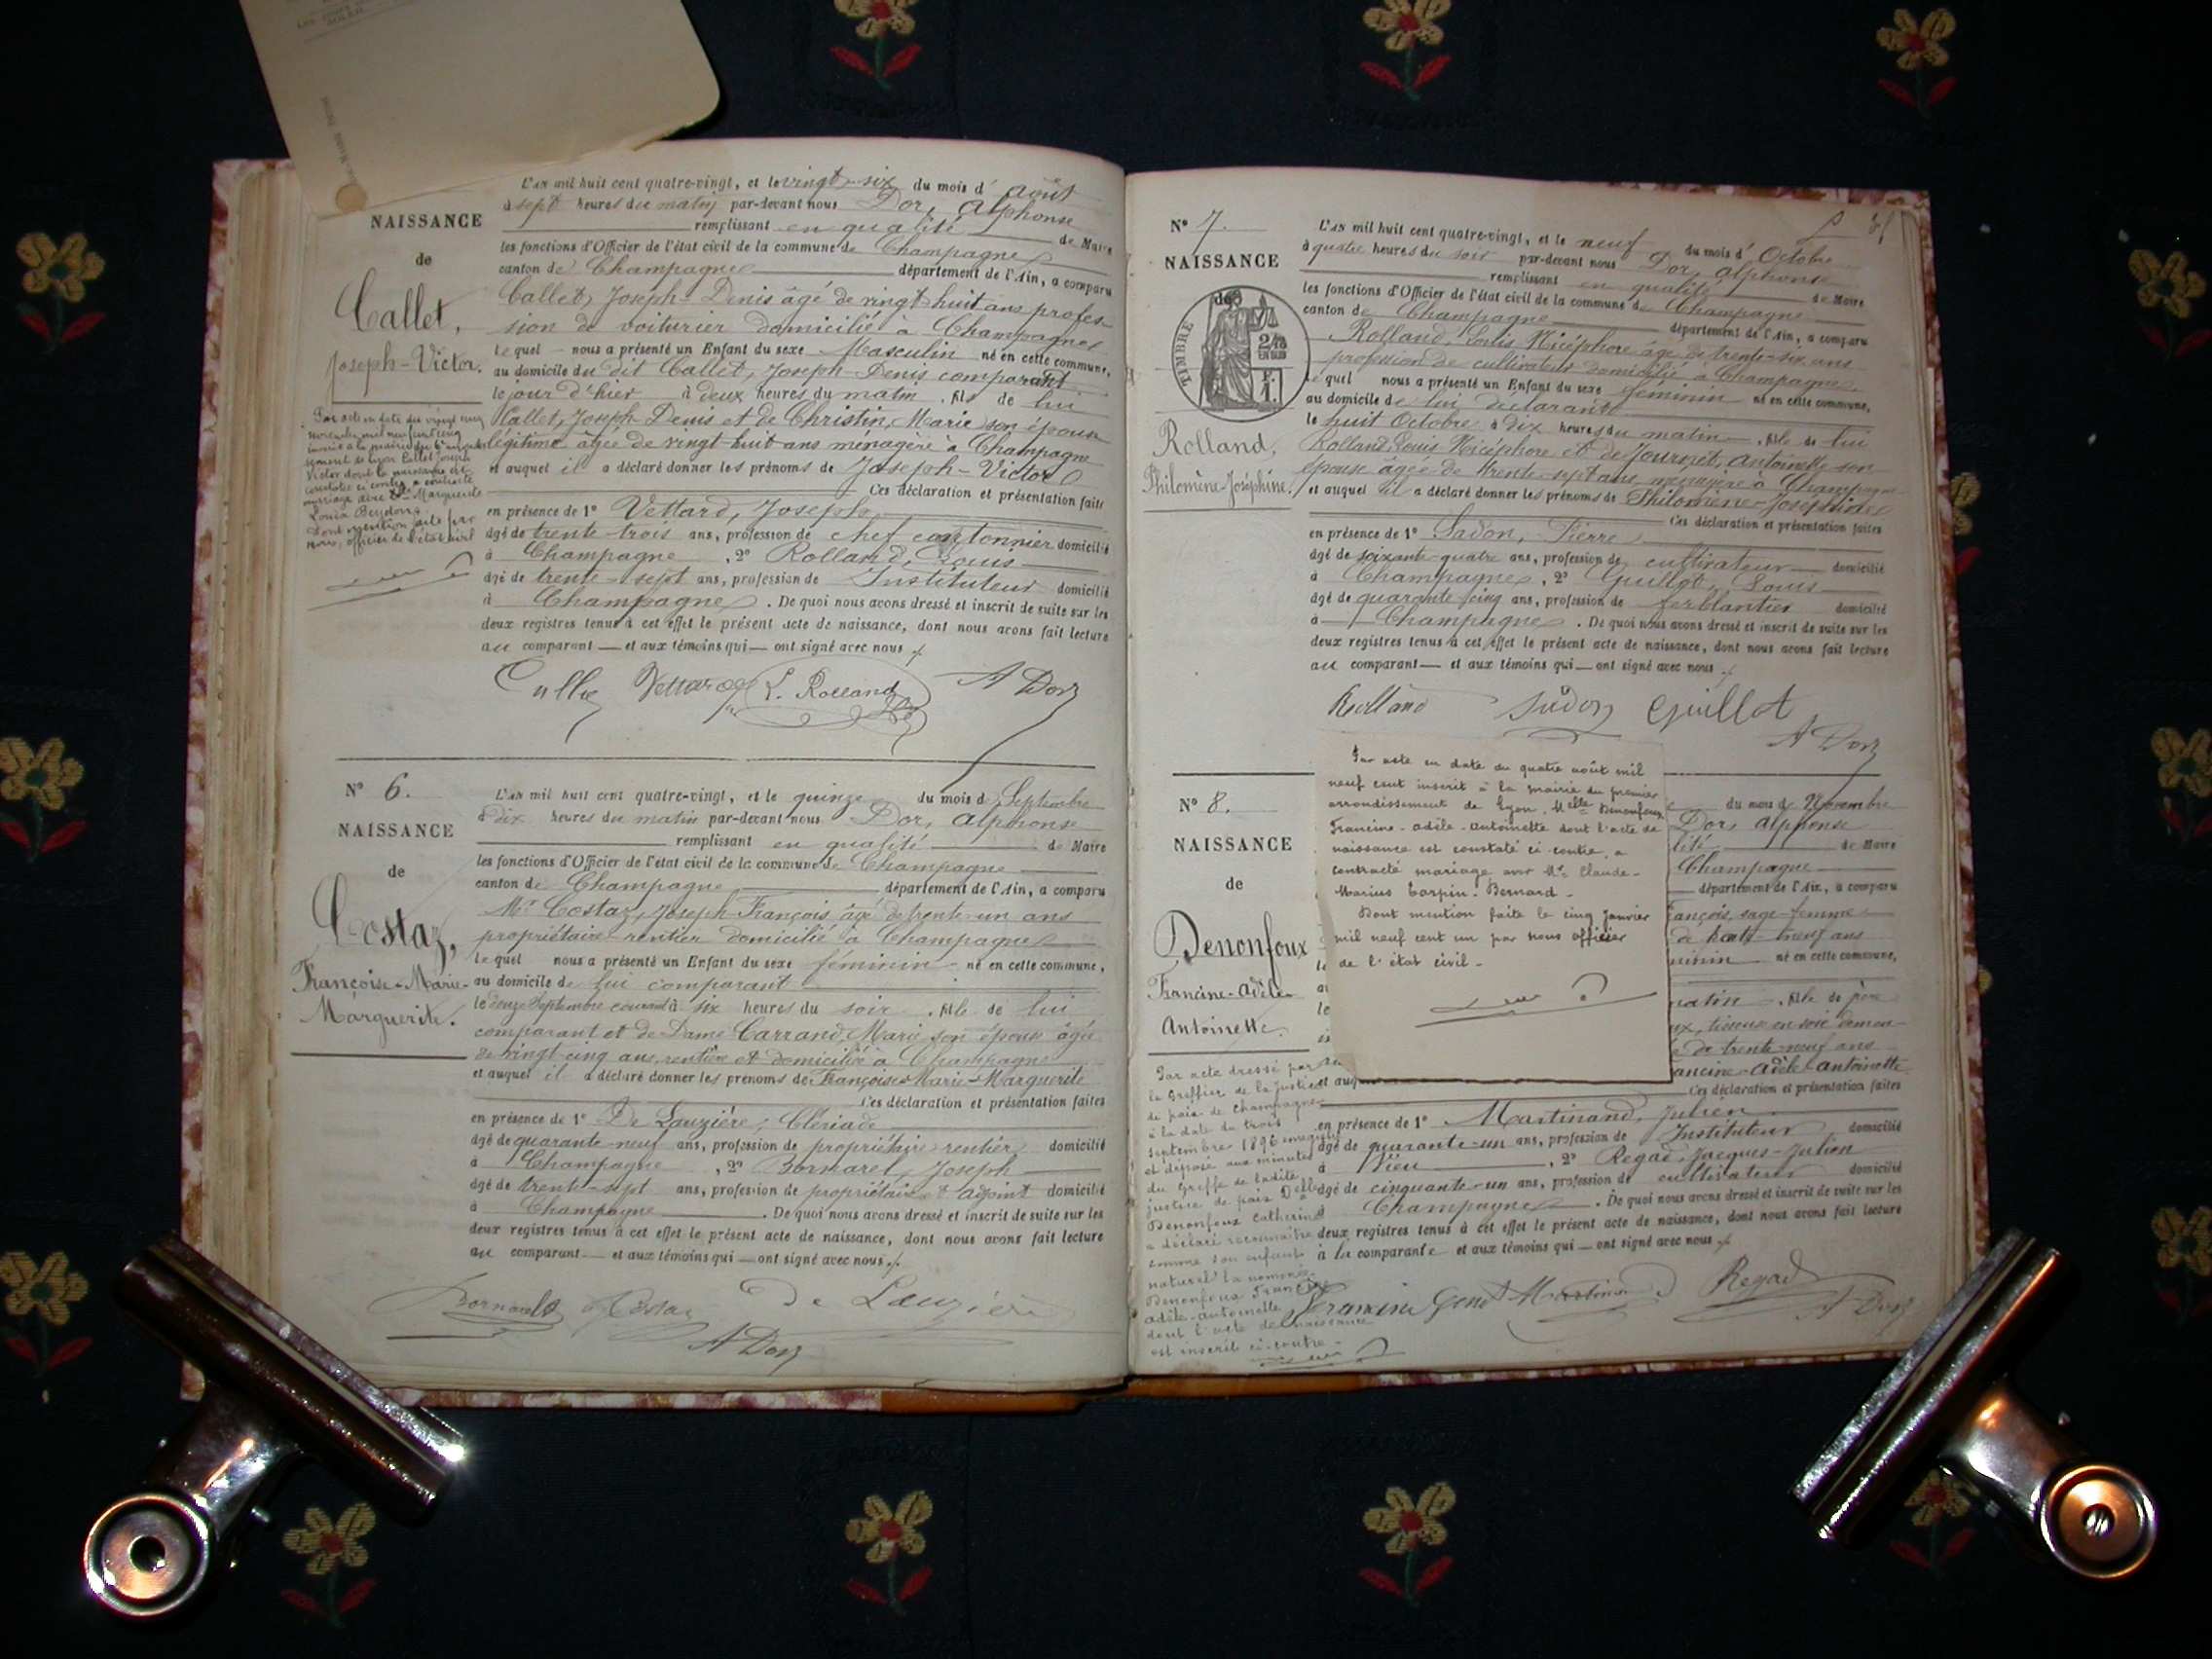 NAISSANCE
de
Callet,
Joseph-Victor.
Par acte en date du vingt cinq
novembre mil neuf cent cinq
inscrit à la mairie du
de Lyon Callet Joseph
Victor dont la naissance est
constatée ci contre a contracté
mariage avec Marguerite
Louise
Dont mention faite par
nous, officier de l'état civil
L'an mil huit cent quatre-vingt, et le vingt-six du mois d' août
à sept heures du matin par-devant nous Dor, Alphonse
remplissant en qualité de Maire
les fonctions d'Officier de l'état civil de la commune de Champagne
canton de Champagne département de l'Ain, a comparu
Callet, Joseph-Denis âgé de vingt huit ans profes-
sion de voiturier domicilié à Champagne
lequel nous a présenté un Enfant du sexe Masculin né en cette commune,
au domicile du dit Callet, Joseph-Denis comparant
le jour d'hier à deux heures du matin, fils de lui
Callet, Joseph Denis et de Christin, Marie son épouse
légitime âgée de vingt huit ans ménagère à Champagne
et auquel il a déclaré donner les prénoms de Joseph-Victor
Ces déclaration et présentation faites
en présence de 1° Vettard, Joseph
âgé de trente trois ans, profession de chef cantonnier domicilié
à Champagne, 2° Rolland, Louis
âgé de trente-sept ans, profession de Instituteur domicilié
à Champagne. De quoi nous avons dressé et inscrit de suite sur les
deux registres tenus à cet effet le présent acte de naissance, dont nous avons fait lecture
au comparant et aux témoins qui ont signé avec nous
Callet Vettard L. Rolland A Dor
N° 6.
NAISSANCE
de
Costaz,
Françoise-Marie-
Marguerite.
L'an mil huit cent quatre-vingt, et le quinze du mois de Septembre
à dix heures du matin par-devant nous Dor, Alphonse
remplissant en qualité de Maire
les fonctions d'Officier de l'état civil de la commune de Champagne
canton de Champagne département de l'Ain, a comparu
Mr Costaz, Joseph-François, âgé de trente-un ans
propriétaire-rentier domicilié à Champagne
lequel nous a présenté un Enfant du sexe féminin né en cette commune,
au domicile de lui comparant
le douze Septembre courant à six heures du soir, fille de lui
comparant et de Dame Carrand, Marie son épouse âgée
de vingt-cinq ans, rentière et domiciliée à Champagne
et auquel il a déclaré donner les prénoms de Françoise-Marie-Marguerite
Ces déclaration et présentation faites
en présence de 1° De Lauzière, Clériade
âgé de quarante-neuf ans, profession de propriétaire-rentier domicilié
à Champagne, 2° Bornarel, Joseph
âgé de trente-sept ans, profession de propriétaire & adjoint domicilié
à Champagne. De quoi nous avons dressé et inscrit de suite sur les
deux registres tenus à cet effet le présent acte de naissance, dont nous avons fait lecture
au comparant et aux témoins qui ont signé avec nous
Bornarel Costaz De Lauzière
A Dor
N° 7.
NAISSANCE
de
TIMBRE
Rolland,
Philomène-Joséphine.
L'an mil huit cent quatre-vingt, et le neuf du mois d' Octobre
à quatre heures du soir par-devant nous Dor, Alphonse
remplissant en qualité de Maire
les fonctions d'Officier de l'état civil de la commune de Champagne
canton de Champagne département de l'Ain, a comparu
Rolland, Louis Nicéphore âgé de trente-six ans
profession de cultivateur domicilié à Champagne
lequel nous a présenté un Enfant du sexe féminin né en cette commune,
au domicile de lui déclarant
le huit Octobre à dix heures du matin, fille de lui
Rolland, Louis Nicéphore et de Journet, Antoinette son
épouse âgée de trente-sept ans, ménagère à Champagne
et auquel il a déclaré donner les prénoms de Philomène-Joséphine
Ces déclaration et présentation faites
en présence de 1° Sadon, Pierre
âgé de soixante-quatre ans, profession de cultivateur domicilié
à Champagne, 2° Guillot, Louis
âgé de quarante cinq ans, profession de ferblantier domicilié
à Champagne. De quoi nous avons dressé et inscrit de suite sur les
deux registres tenus à cet effet le présent acte de naissance, dont nous avons fait lecture
au comparant et aux témoins qui ont signé avec nous
Rolland Sudon Guillot
A Dor
N° 8.
NAISSANCE
de
Denonfoux
Francine-Adèle
Antoinette.
Par acte dressé par
le Greffier de la justice
de paix de Champagne
à la date du trois
septembre 1896 enregistré
et déposé aux minutes
du Greffe de ladite
justice de paix Delle
Denonfoux Catherine
a déclaré reconnaître
comme son enfant
naturel la nommée
Denonfoux Francine
adèle-antoinette
dont l'acte de naissance
est inscrit ci-contre.
Par acte en date du quatre août mil
neuf cent inscrit à la mairie du premier
arrondissement de Lyon, Melle Denonfoux
Francine-adèle-antoinette dont l'acte de
naissance est constaté ci contre, a
contracté mariage avec Mr Claude-
Marius Carpin-Bernard.
Dont mention faite le cinq Janvier
mil neuf cent un par nous officier
de l'état civil.
du mois de Novembre
Dor, Alphonse
lité de Maire
Champagne
département de l'Ain, a comparu
ançois, sage-femme
de trente-neuf ans
minin né en cette commune,
matin, fille de père
ux, tisseuse en soie demeu-
de trente-neuf ans
ancine-Adèle-Antoinette
Ces déclaration et présentation faites
en présence de 1° Martinand, Julien
âgé de quarante-un ans, profession de Instituteur domicilié
à Vieu, 2° Regad, Jacques-Julien
âgé de cinquante-un ans, profession de cultivateur domicilié
à Champagne. De quoi nous avons dressé et inscrit de suite sur les
deux registres tenus à cet effet le présent acte de naissance, dont nous avons fait lecture
à la comparante et aux témoins qui ont signé avec nous
Martinand Regad
A Dor